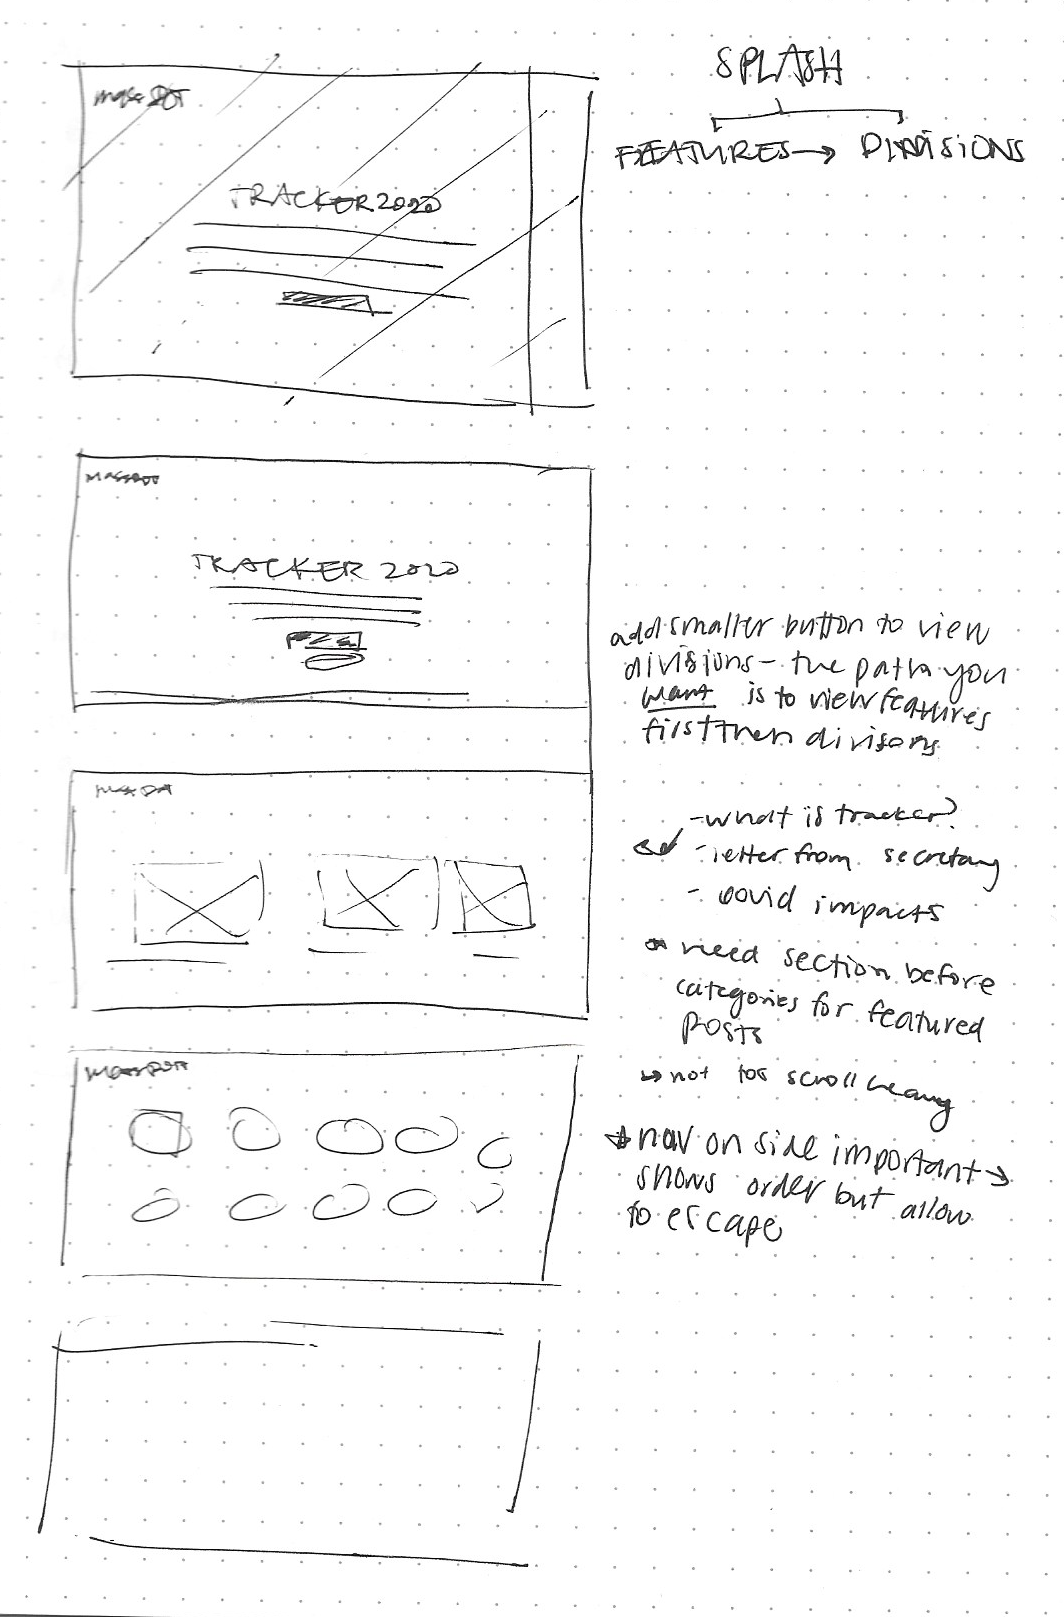 SPLASH
FEATURES → DIVISIONS
MassDOT
TRACKER 2020
MassDOT
TRACKER 2020
add smaller button to view
divisions - the path you
want is to view features
first then divisions
- what is tracker?
- letter from secretary
- covid impacts
need section before
categories for featured
posts
→ not too scroll heavy
nav on side important →
shows order but allow
to escape